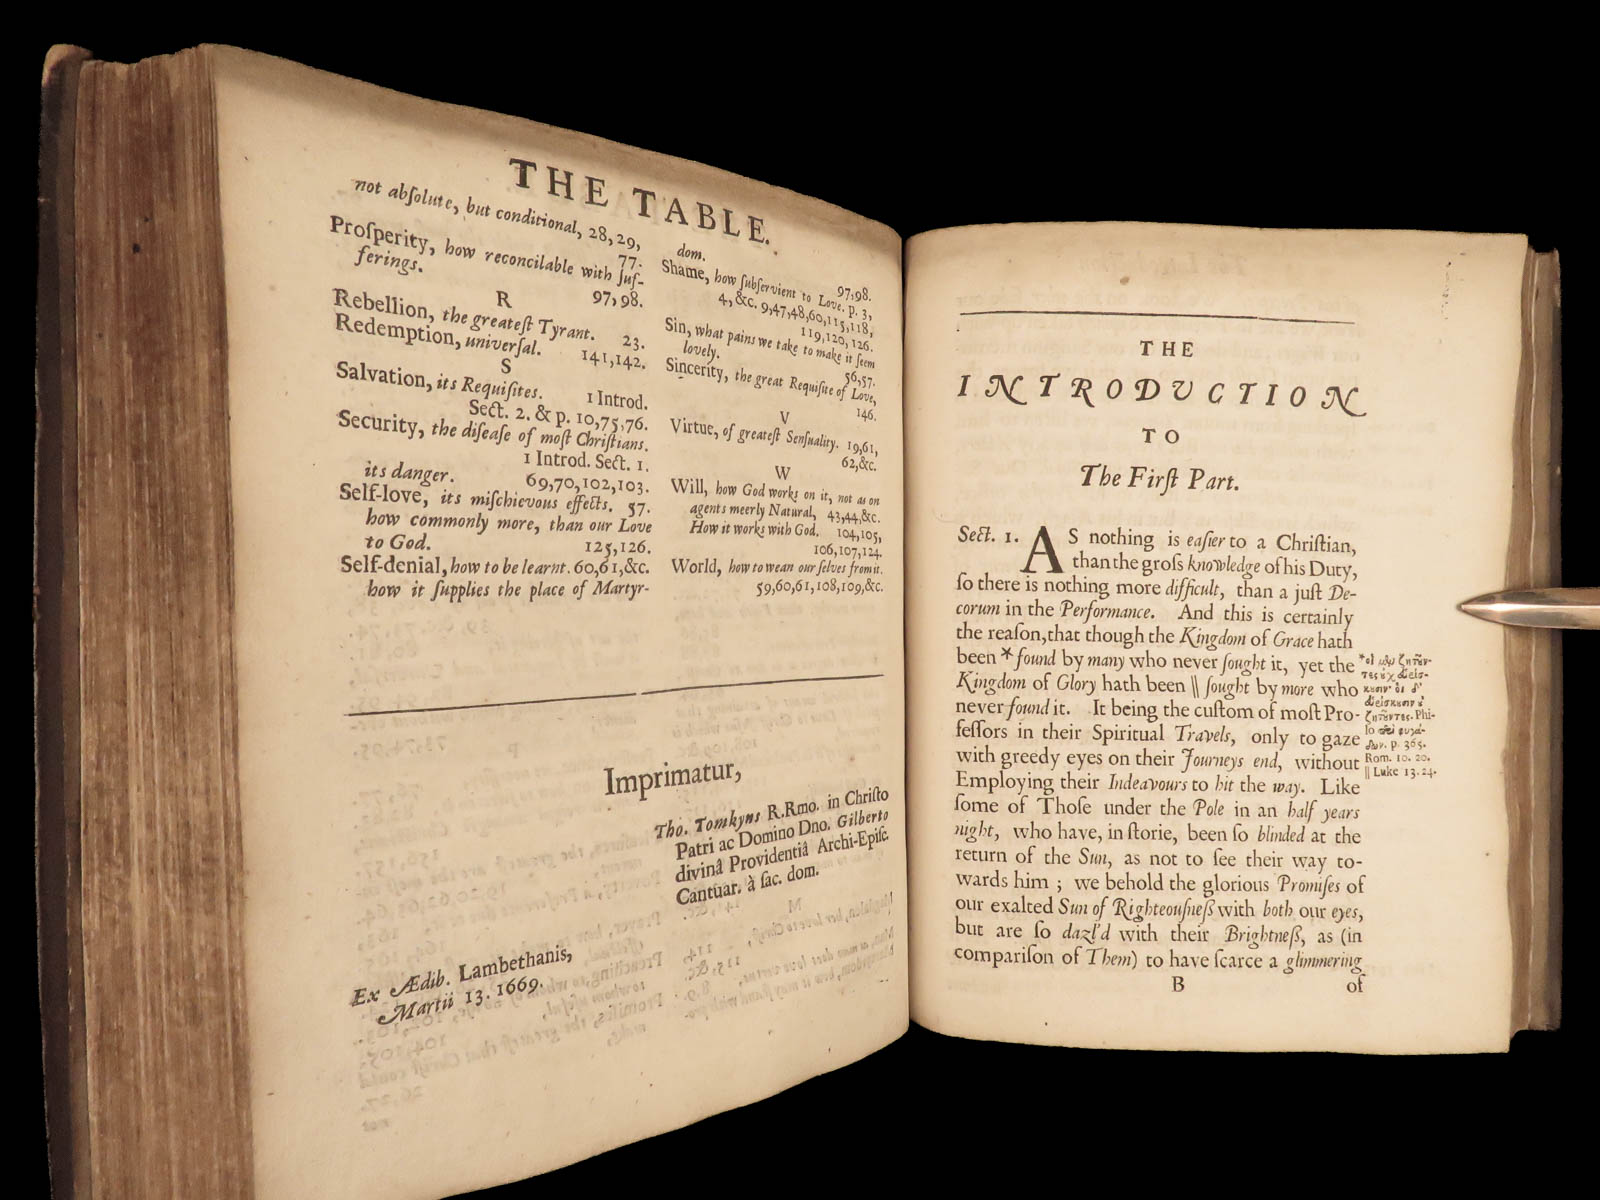 THE TABLE.
not abſolute, but conditional, 28, 29,
77.
Proſperity, how reconcilable with ſuf-
ferings. 97, 98.
R
Rebellion, the greateſt Tyrant. 23.
Redemption, univerſal. 141, 142.
S
Salvation, its Requiſites. 1 Introd.
Sect. 2. & p. 10, 75, 76.
Security, the diſeaſe of moſt Chriſtians.
1 Introd. Sect. 1.
its danger. 69, 70, 102, 103.
Self-love, its miſchievous effects. 57.
how commonly more, than our Love
to God. 125, 126.
Self-denial, how to be learnt. 60, 61, &c.
how it ſupplies the place of Martyr-
dom. 97, 98.
Shame, how ſubſervient to Love. p. 3,
4, &c. 9, 47, 48, 60, 115, 118,
119, 120, 126.
Sin, what pains we take to make it ſeem
lovely. 56, 57.
Sincerity, the great Requiſite of Love,
146.
V
Virtue, of greateſt Senſuality. 19, 61,
62, &c.
W
Will, how God works on it, not as on
agents meerly Natural, 43, 44, &c.
How it works with God. 104, 105,
106, 107, 124.
World, how to wean our ſelves from it.
59, 60, 61, 108, 109, &c.
Imprimatur,
Tho. Tomkyns R. Rmo. in Chriſto
Patri ac Domino Dno. Gilberto
divinâ Providentiâ Archi-Epiſc.
Cantuar. à ſac. dom.
Ex Ædib. Lambethanis,
Martii 13. 1669.
THE
INTRODUCTION
TO
The Firſt Part.
Sect. 1. AS nothing is eaſier to a Chriſtian,
than the groſs knowledge of his Duty,
ſo there is nothing more difficult, than a juſt De-
corum in the Performance. And this is certainly
the reaſon, that though the Kingdom of Grace hath
been * found by many who never ſought it, yet the
Kingdom of Glory hath been || ſought by more who
never found it. It being the cuſtom of moſt Pro-
feſſors in their Spiritual Travels, only to gaze
with greedy eyes on their Journeys end, without
Employing their Indeavours to hit the way. Like
ſome of Thoſe under the Pole in an half years
night, who have, in ſtorie, been ſo blinded at the
return of the Sun, as not to ſee their way to-
wards him ; we behold the glorious Promiſes of
our exalted Sun of Righteouſneſs with both our eyes,
but are ſo dazl'd with their Brightneſs, as (in
compariſon of Them) to have ſcarce a glimmering
B of
Phi-
lo
p. 365.
Rom. 10. 20.
|| Luke 13. 24.